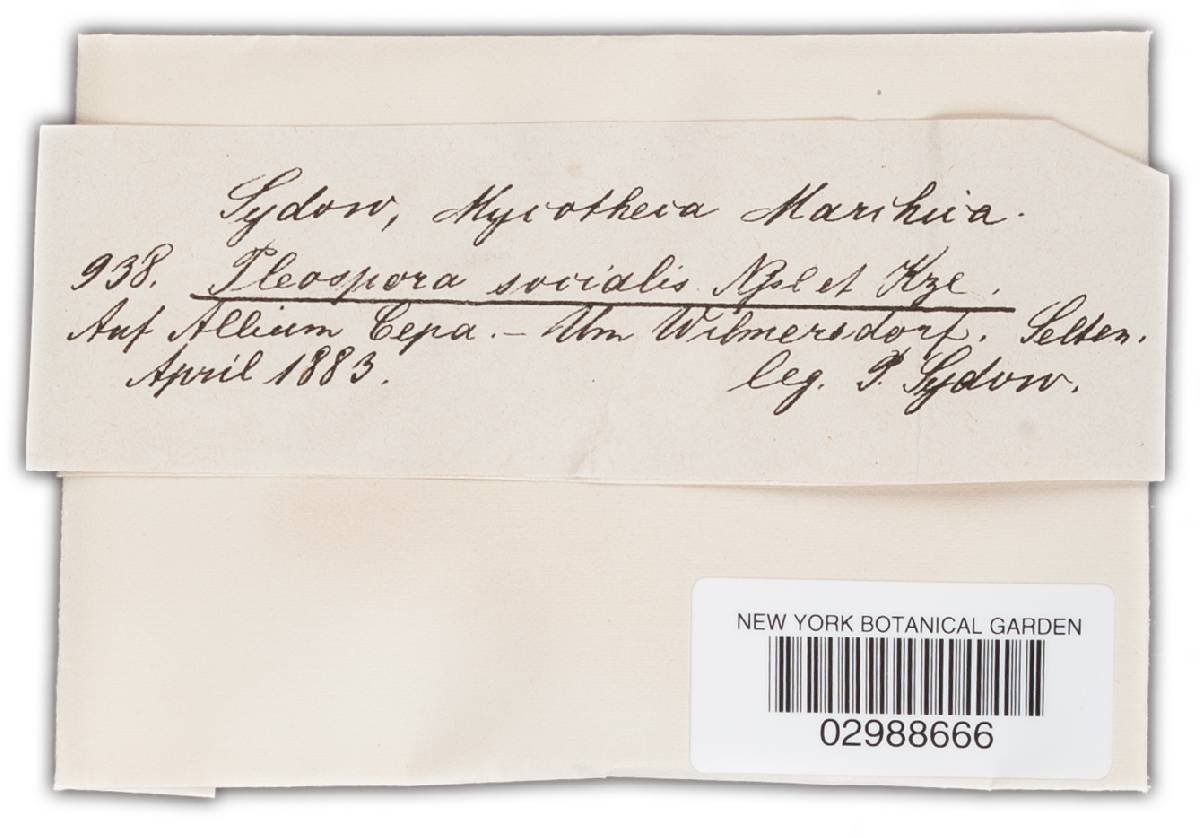 Sydow, Mycotheca Marchica.
938. Pleospora socialis Nssl et Kze.
Auf Allium Cepa. – Um Wilmersdorf. Selten.
April 1883. leg. P. Sydow.
NEW YORK BOTANICAL GARDEN
02988666